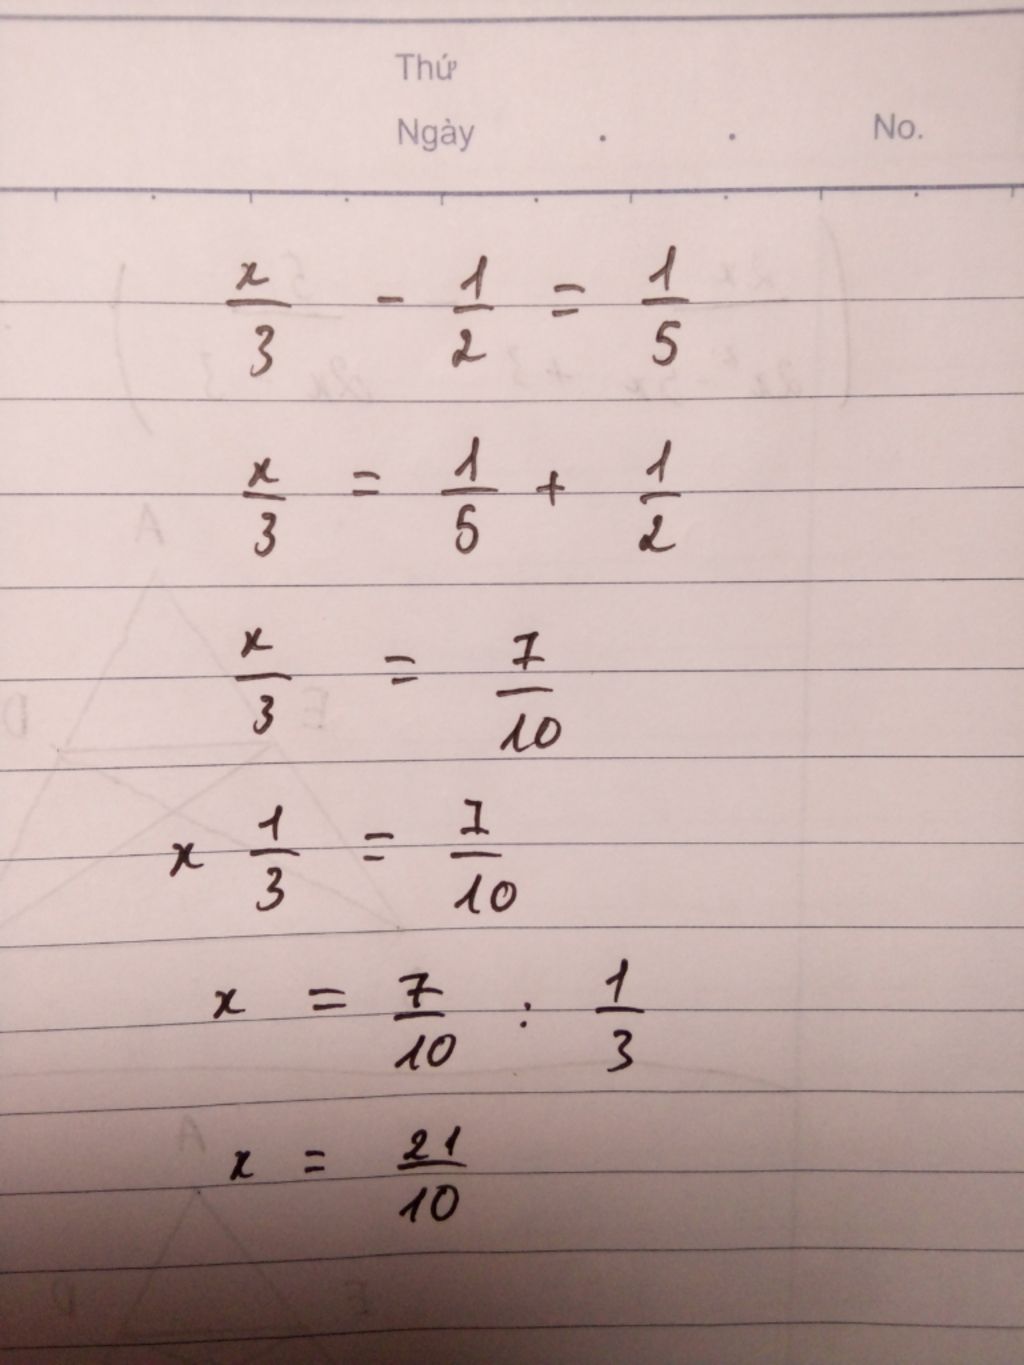 Thứ
Ngày . . No.
x/3 - 1/2 = 1/5
x/3 = 1/5 + 1/2
x/3 = 7/10
x 1/3 = 7/10
x = 7/10 : 1/3
x = 21/10